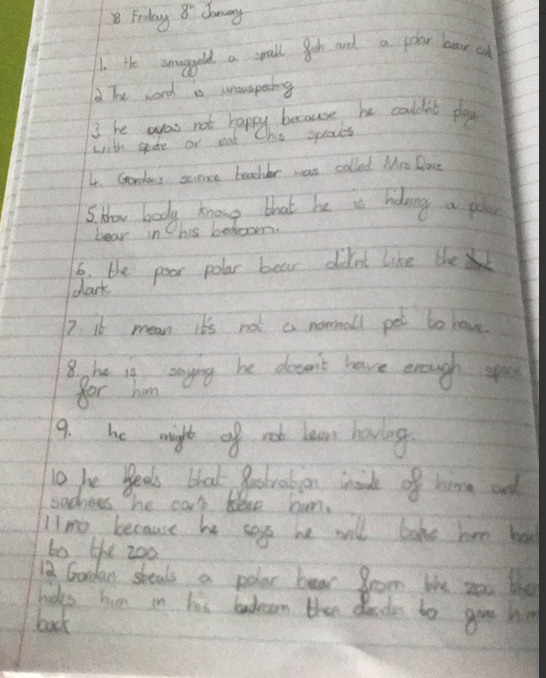 8 Friday 8th January
1. He smuggold a small fish and a polar bear cub
2 The word is unsuspecting
3 he was not happy because he couldn't play
with spike or eat his sprouts
4. Gordons science teacher was called Mrs
5. know body knows that he is hiding a polar
bear in his bedroom.
6. the poor polar bear didn't like the
dark
7. it mean it's not a normall pet to have.
8. he is saying he doesn't have enough space
for him
9. he might of not been
10 he feels that fustration inside of hime and
sadnees he can't keep him.
11 no because he says he will take him back
to the zoo
12 Gordan steals a polar bear from the zoo then
hides him in his bedroom then decides to give him
back